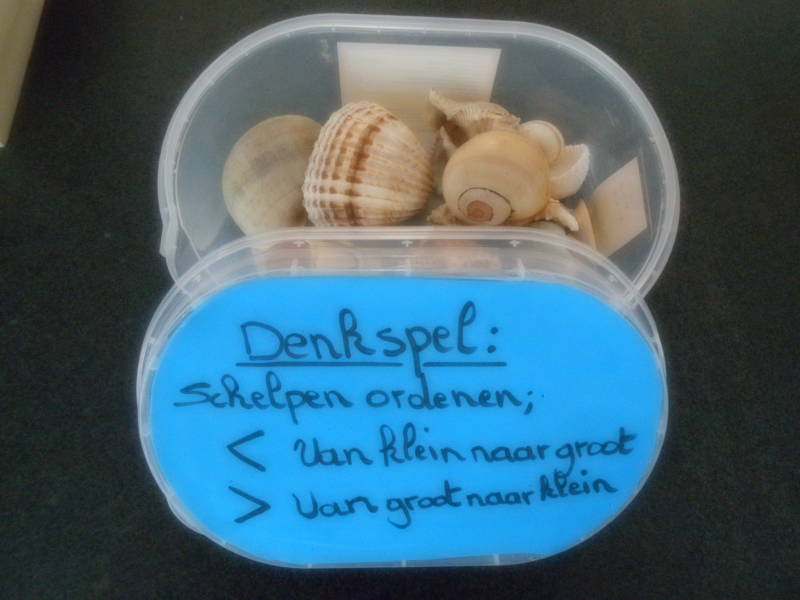 Denkspel:
Schelpen ordenen;
< Van klein naar groot
> Van groot naar klein